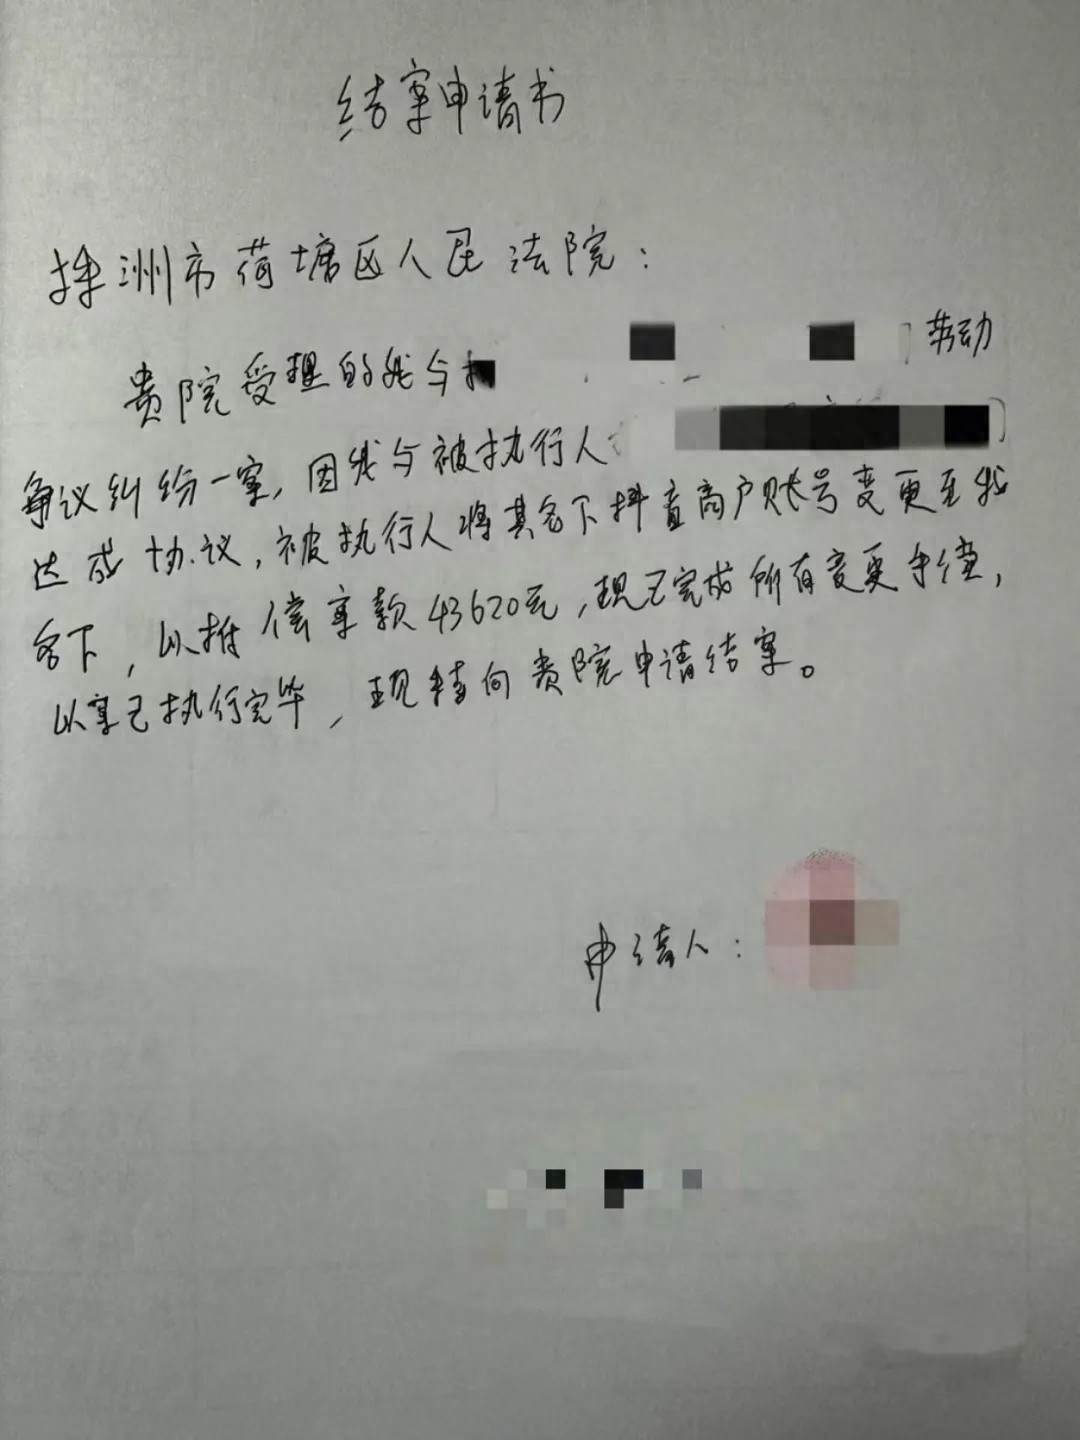 结案申请书
株洲市荷塘区人民法院：
贵院受理的我与 劳动
争议纠纷一案，因我与被执行人
达成协议，被执行人将其名下抖音商户账号变更至我
名下，以抵偿案款43620元，现已完成所有变更手续，
以案已执行完毕，现特向贵院申请结案。
申请人：